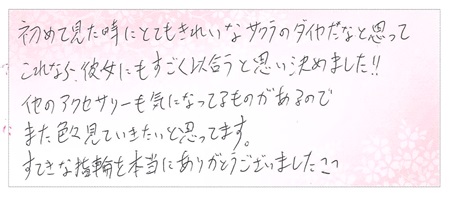 初めて見た時にとてもきれいなサクラのダイヤだなと思って
これなら、彼女にもすごく以合うと思い決めました!!
他のアクセサリーも気になってるものがあるので
また色々見ていきたいと思ってます。
すてきな指輪を本当にありがとうございました